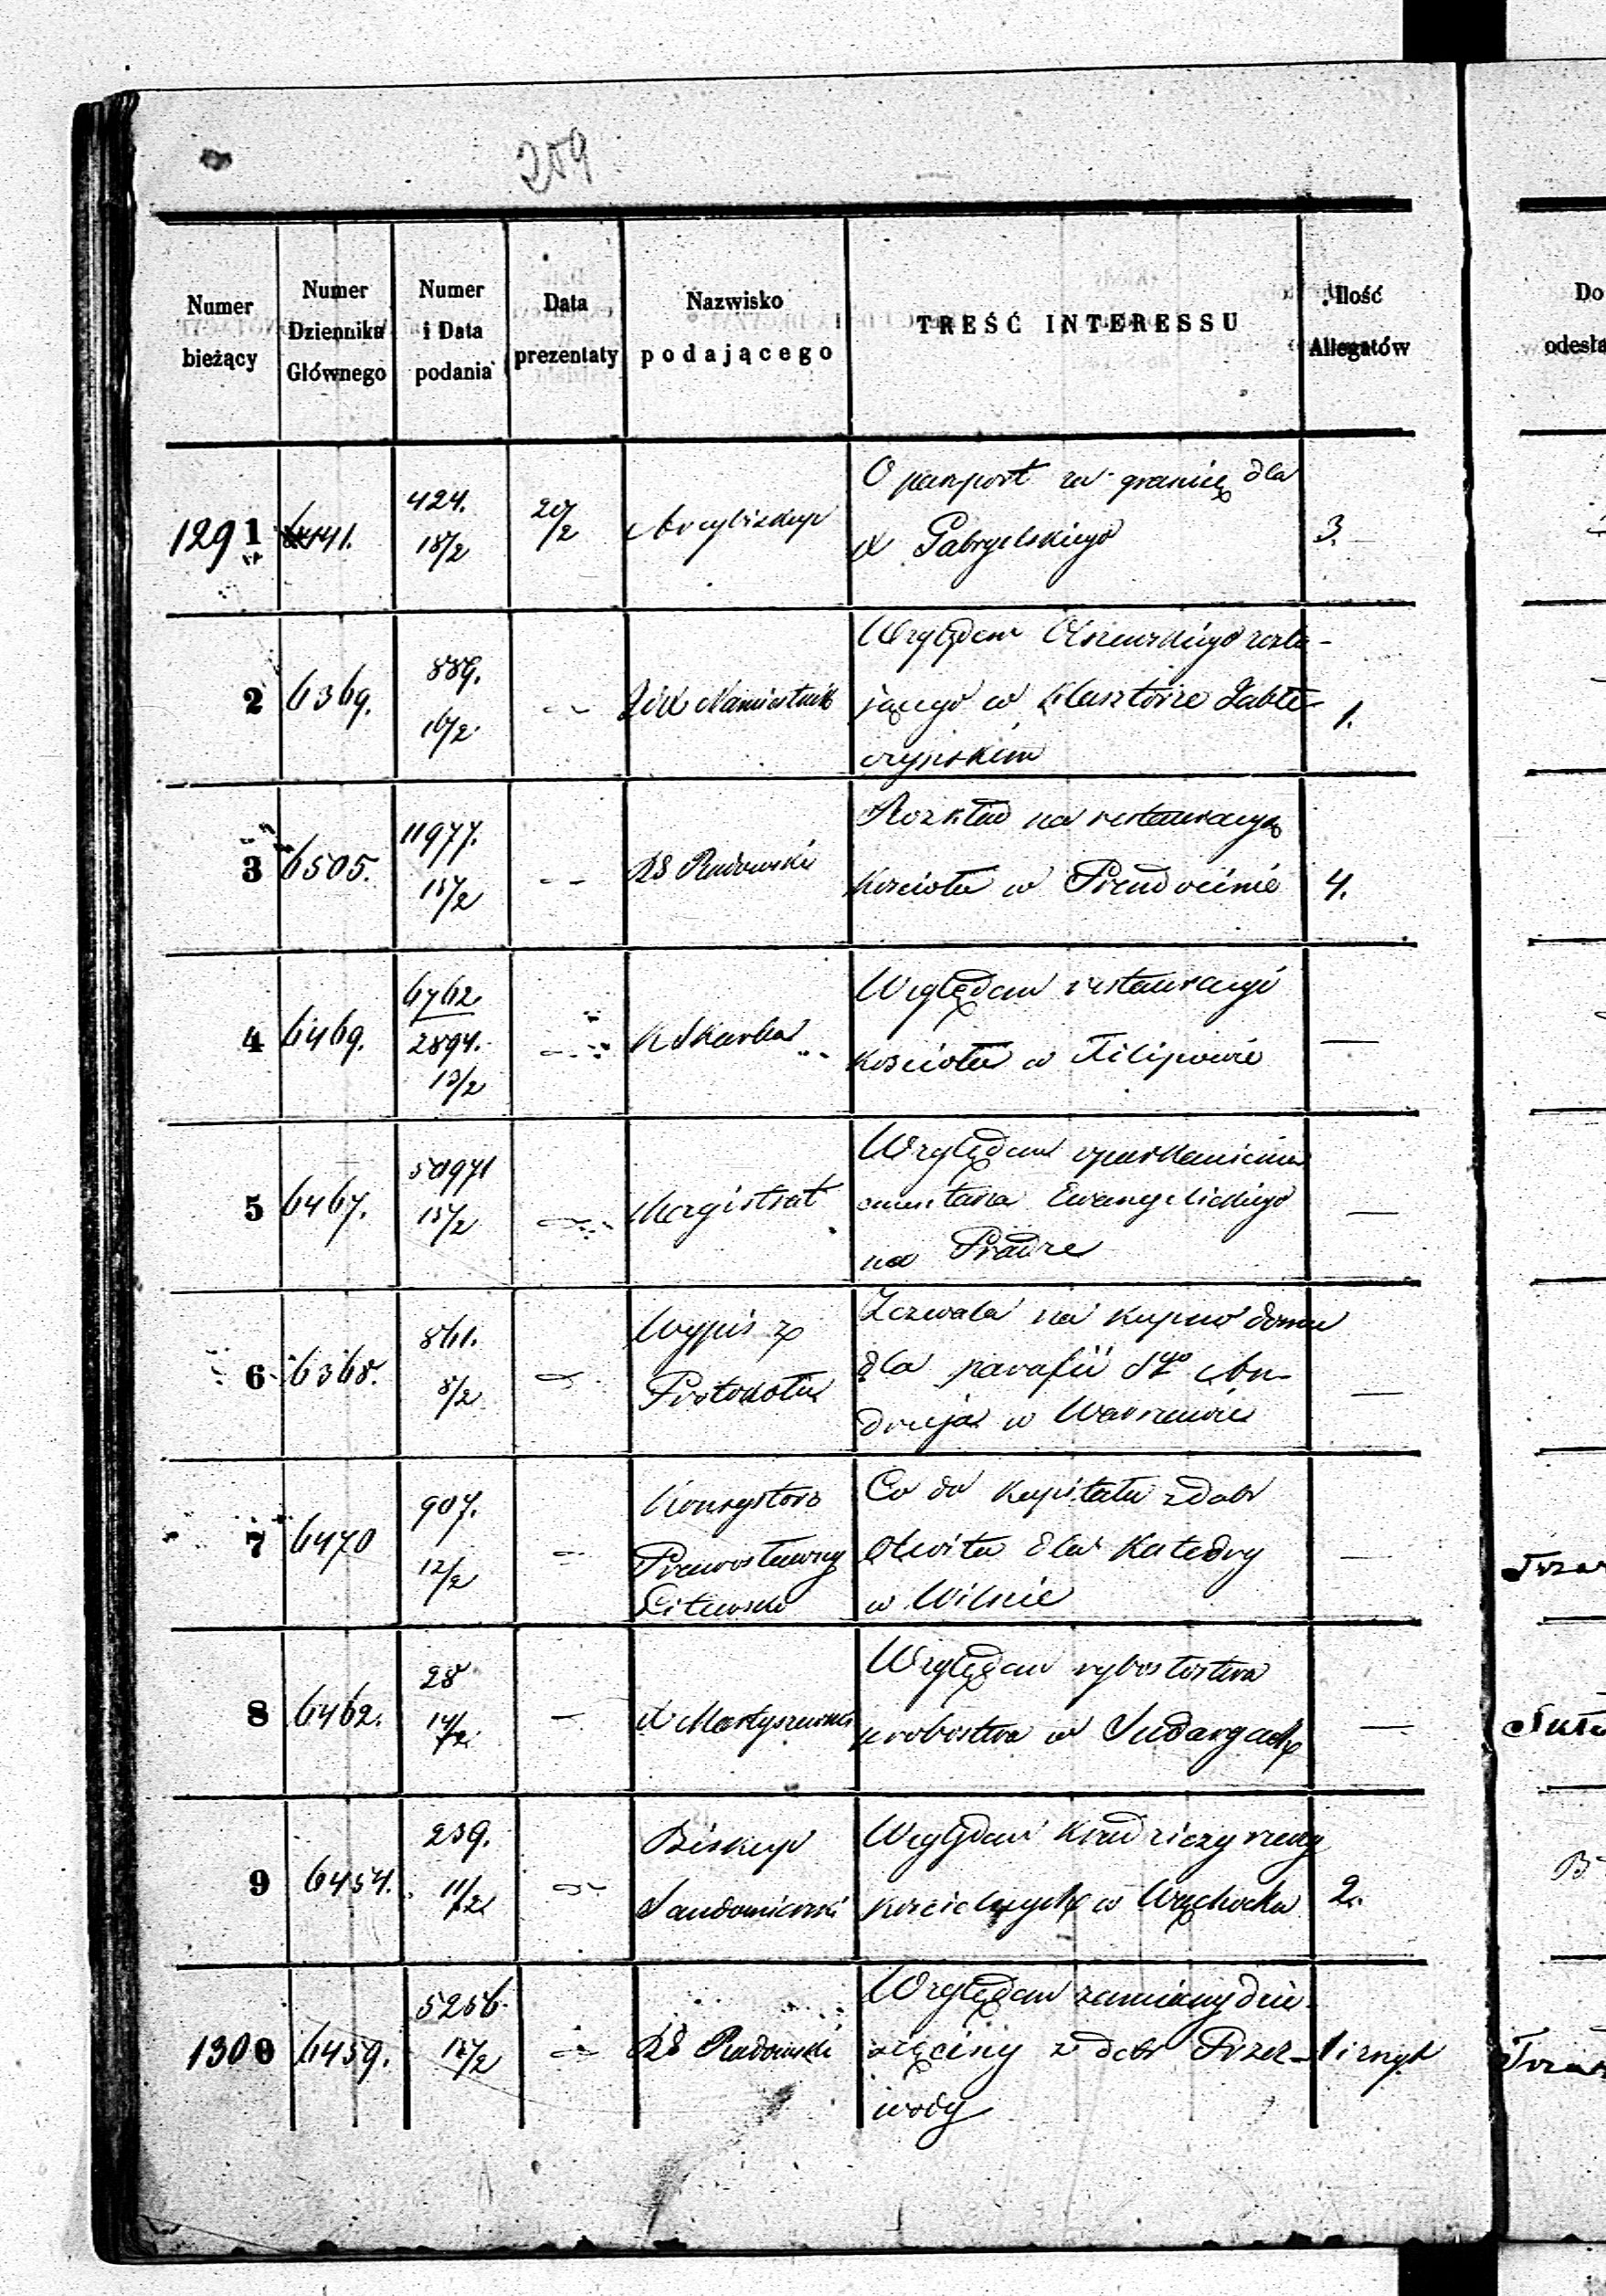 259
Numer
bieżący
Numer
Dziennika
Głównego
Numer
i Data
podania
Data
prezentaty
Nazwisko
podającego
TREŚĆ INTERESSU
Ilość
Allegatów
Do
odesła
1291
141.
424.
18/2
20/2
Arcybiskup
O paszport za granicę dla
X Gabryelskiego
3.
2
6369.
889.
16/2
Namiestnik
Względem Olszewskiego zosta-
jącego w Klasztorze
czyńskim
1.
3
6505.
11977.
15/2
RG Radomski
Rozkład na restauracyą
Kościoła w Prendocinie
4.
4
6469.
6762
2894.
13/2
K Skarbu
Względem restauracyi
Kościoła w Filipowie
—
5
6467.
50971
15/2
Magistrat
Względem oparkanienia
cmentarza Ewangelickiego
na Pradze
—
6
6368.
861.
8/2
Wypis z
Protokołu
Zezwala na kupno domu
dla parafii Sgo An-
drzeja w Warszawie
—
7
6470
907.
12/2
Konsystorz
Prawosławny
Litewski
Co do kapitału z dóbr
Otwita dla Katedry
w Wilnie
—
8
6462.
28
14/2
X Martyszewski
Względem
probostwa w Sudargach
—
9
6454.
239.
11/2
Biskup
Sandomierski
Względem Kradzieży rzeczy
Kościelnych w Wąchocku
2.
1300
6459.
5256
12/2
RG Radomski
Względem zamiany dzie-
sięciny z dóbr Przez-
wody
1 i zszyt